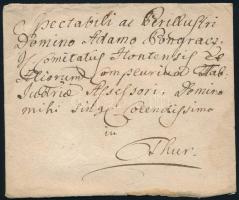 Spectabili ac Perillustri
Domino Adamo Pongracz
I. Comitatus Hontensis Et
Aliorum Complurium Tab
Judriae Assessori, Domino
mihi sing. Colendissimo
in
Thur.